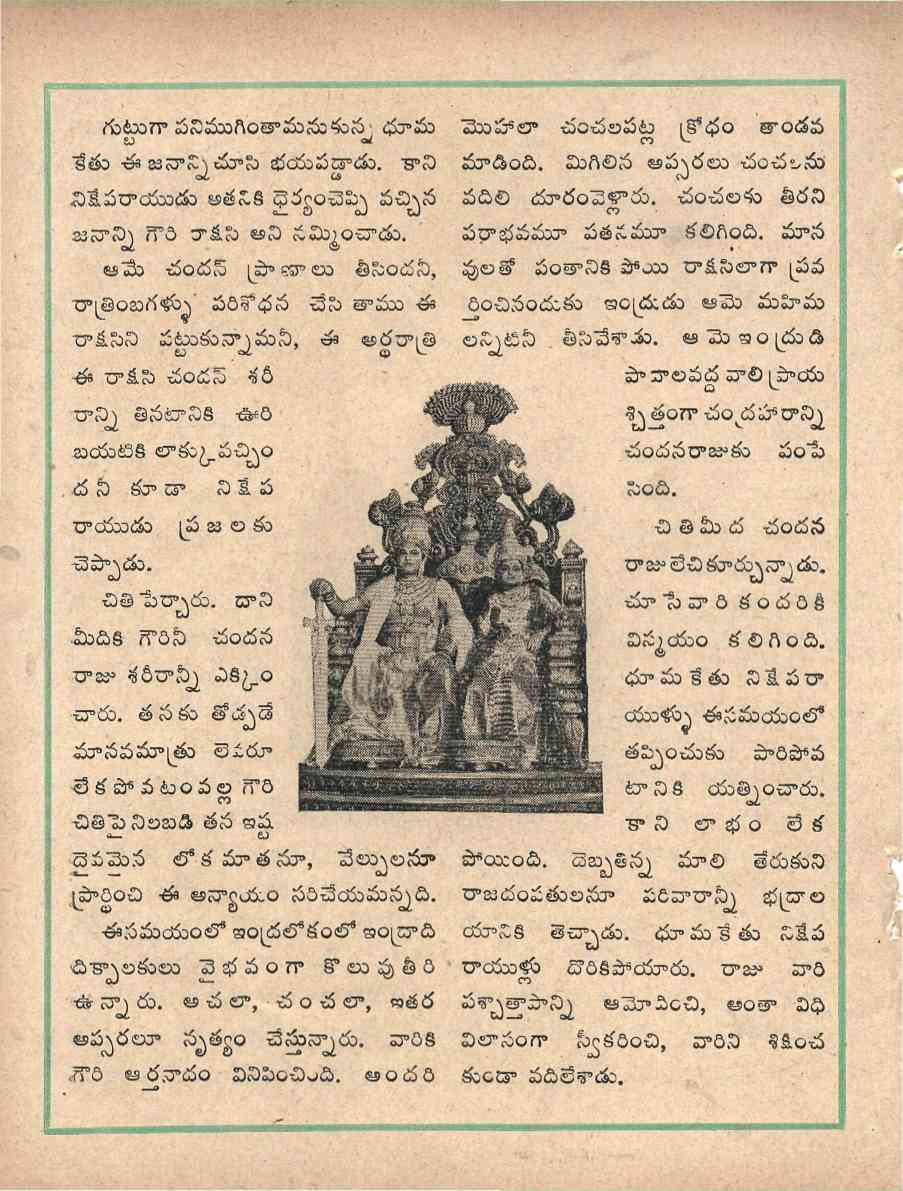 గుట్టుగా పనిముగింతామనుకున్న ధూమ
కేతు ఈ జనాన్ని చూసి భయపడ్డాడు. కాని
నిక్షేపరాయుడు అతనికి ధైర్యంచెప్పి వచ్చిన
జనాన్ని గౌరి రాక్షసి అని నమ్మించాడు.
ఆమే చందన్ ప్రాణాలు తీసిందనీ,
రాత్రింబగళ్ళు పరిశోధన చేసి తాము ఈ
రాక్షసిని పట్టుకున్నామనీ, ఈ అర్ధరాత్రి
ఈ రాక్షసి చందన్ శరీ
రాన్ని తినటానికి ఊరి
బయటికి లాక్కువచ్చిం
దనీ కూడా నిక్షేప
రాయుడు ప్రజలకు
చెప్పాడు.
చితి పేర్చారు. దాని
మీదికి గౌరినీ చందన
రాజు శరీరాన్నీ ఎక్కిం
చారు. తనకు తోడ్పడే
మానవమాత్రు లెవరూ
లేకపోవటంవల్ల గౌరి
చితిపై నిలబడి తన ఇష్ట
దైవమైన లోకమాతనూ, వేల్పులనూ
ప్రార్థించి ఈ అన్యాయం సరిచేయమన్నది.
ఈసమయంలో ఇంద్రలోకంలో ఇంద్రాది
దిక్పాలకులు వైభవంగా కొలువుతీరి
ఉన్నారు. అచలా, చంచలా, ఇతర
అప్సరలూ నృత్యం చేస్తున్నారు. వారికి
గౌరి ఆర్తనాదం వినిపించింది. అందరి
మొహాలా చంచలపట్ల క్రోధం తాండవ
మాడింది. మిగిలిన అప్సరలు చంచలను
వదిలి దూరంవెళ్లారు. చంచలకు తీరని
పరాభవమూ పతనమూ కలిగింది. మాన
వులతో పంతానికి పోయి రాక్షసిలాగా ప్రవ
ర్తించినందుకు ఇంద్రుడు ఆమె మహిమ
లన్నిటినీ తీసివేశాడు. ఆమె ఇంద్రుడి
పాదాలవద్ద వాలి ప్రాయ
శ్చిత్తంగా చంద్రహారాన్ని
చందనరాజుకు పంపే
సింది.
చితిమీద చందన
రాజు లేచి కూర్చున్నాడు.
చూసేవారి కందరికీ
విస్మయం కలిగింది.
ధూమకేతు నిక్షేపరా
యుళ్ళు ఈసమయంలో
తప్పించుకు పారిపోవ
టానికి యత్నించారు.
కాని లాభం లేక
పోయింది. దెబ్బతిన్న మాలి తేరుకుని
రాజదంపతులనూ పరివారాన్నీ భద్రాల
యానికి తెచ్చాడు. ధూమకేతు నిక్షేప
రాయుళ్లు దొరికిపోయారు. రాజు వారి
పశ్చాత్తాపాన్ని ఆమోదించి, అంతా విధి
విలాసంగా స్వీకరించి, వారిని శిక్షించ
కుండా వదిలేశాడు.